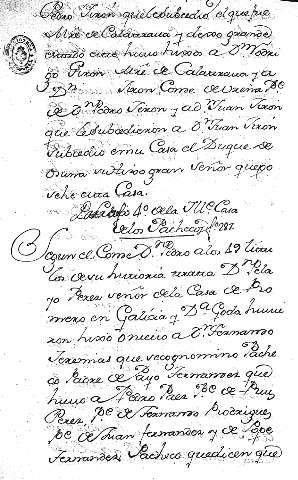 Pedro Jirón que le subsedio el que fue
Mre de Calatrava y dexo grande
estado este huvo hixos a Dn Rodri
go Jiron Mre de Calatrava y a
Dn Jiron Come de Vreña Pe
de Dn Pedro Jiron y a Dn Juan Jiron
que le subsedieron a Dn Juan Jirón
subsedio en su Casa el Duque de
Osuna su hixo gran señor que po
sehe esta Casa.
4º de la Ille Casa
de los Pachecos fo 287.
Segun el Come Dn Pedro a los 49 titu
los de su historia Dn Pela
yo Perez señor de la Casa de Ro
mero en Galicia y Da Goda huvie
ron hixo a Dn Fernando
Jeremias que se cognomino Pache
co Padre de Payo Fernandes que
huvo a Pedro Paez Pe de Rui
Perez, Pe de Fernando Rodrigues
Pe de Juan fernandez y de Lope
Fernandes Pacheco que dicen que